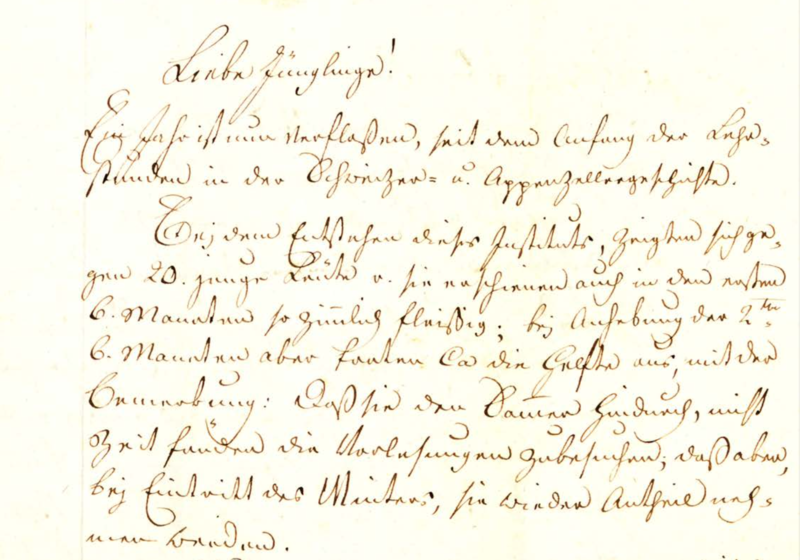 Liebe Jünglinge!
Ein Jahr ist nun verfloßen, seit dem Anfang der Lehr-
stunden in der Schweizer- u. Appenzellergeschichte.
Bej dem Entstehen dieses Instituts, zeigten sich ge-
gen 20. junge Leüte u. sie erschienen auch in den ersten
6. Monaten so zimmlich fleissig; bej Anhebung der 2ten
6. Monaten aber traten Ca die Helfte aus, mit der
Bemerkung: Daß sie den Sommer hindurch, nicht
Zeit fänden die Vorlesungen zubesuchen; daß aber,
bej Eintritt des Winters, sie wieder Antheil neh-
men werden.